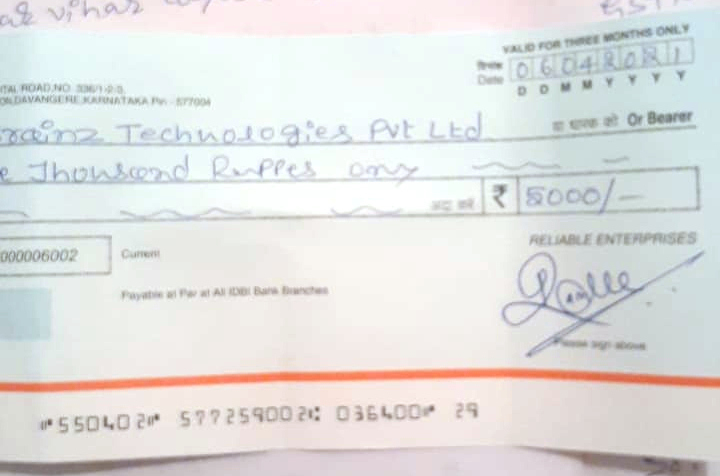 vihar
VALID FOR THREE MONTHS ONLY
दिनांक
Date
06042021
D D M M Y Y Y Y
ITAL ROAD, NO. 336/1-2-3,
DAVANGERE, KARNATAKA Pin - 577004
rainz Technologies Pvt Ltd
या धारक को Or Bearer
e Thousand Ruppes only
अदा करें ₹ 5000/-
RELIABLE ENTERPRISES
000006002
Current
Payable at Par at All IDBI Bank Branches
Please sign above
⑈550402⑈ 577259002⑆ 036400⑈ 29